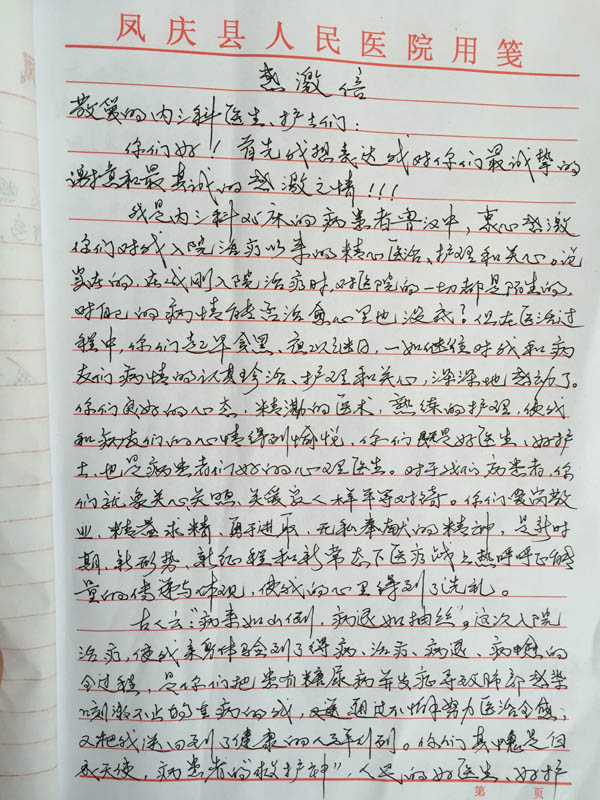 凤庆县人民医院用笺
感激信
敬爱的内三科医生、护士们:
你们好!首先我想表达我对你们最诚挚的
谢意和最真诚的感激之情!!!
我是内三科 床的病患者鲁汉中,衷心感激
你们对我入院治疗以来的精心医治、护理和关心。说
实在的,在我刚入院治疗时,对医院的一切都是陌生的,
对自己的病情能否治愈心里也没底!但在医治过
程中,你们起早贪黑、夜以继日,一如继往对我和病
友们病情的认真珍治、护理和关心,深深地感动了。
你们良好的心态,精湛的医术,熟练的护理,使我
和病友们的心情得到愉悦,你们既是好医生、好护
士,也是病患者们好的心理医生。对于我们病患者,你
们就象关心 人样平等对待。你们爱岗敬
业,精益求精,勇于进取,无私奉献的精神,是新时
期,新形势,新征程和新常态下医疗战上热呼呼正能
量的传递与体现,使我的心里得到了洗礼。
古人云:"病来如山倒,病退如抽丝"。这次入院
治疗,使我亲身体会到了得病、治疗、病退、病愈的
全过程,是你们把患有糖尿病并发症导致肺部感染
咳漱不止的重病的我,又通过不懈努力医治全愈;
又把我送回到了健康的人群行列。你们真愧是白
衣天使,病患者的"救护神",人民的好医生、好护
第 页